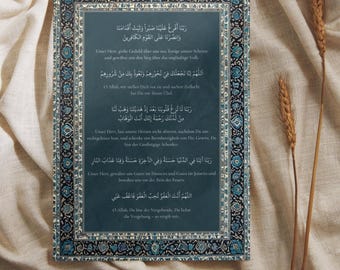 رَبَّنَا أَفْرِغْ عَلَيْنَا صَبْرًا وَثَبِّتْ أَقْدَامَنَا
وَانْصُرْنَا عَلَى الْقَوْمِ الْكَافِرِينَ
Unser Herr, gieße Geduld über uns aus, festige unsere Schritte
und gewähre uns den Sieg über das ungläubige Volk.
اللَّهُمَّ إِنَّا نَجْعَلُكَ فِي نُحُورِهِمْ وَنَعُوذُ بِكَ مِنْ شُرُورِهِمْ
O Allah, wir stellen Dich
Dir vor ihrem Übel.
رَبَّنَا لَا تُزِغْ قُلُوبَنَا بَعْدَ إِذْ هَدَيْتَنَا وَهَبْ لَنَا
مِنْ لَدُنْكَ رَحْمَةً إِنَّكَ أَنْتَ الْوَهَّابُ
Unser Herr, lass unsere Herzen nicht abirren, nachdem Du uns
rechtgeleitet hast, und schenke uns Barmherzigkeit von Dir. Gewiss, Du
bist der
رَبَّنَا آتِنَا فِي الدُّنْيَا حَسَنَةً وَفِي الْآخِرَةِ حَسَنَةً وَقِنَا عَذَابَ النَّارِ
Unser Herr, gewähre uns Gutes im Diesseits und Gutes im Jenseits und
bewahre uns vor der Pein des Feuers.
اللَّهُمَّ أَنْتَ الْعَفُوُّ تُحِبُّ الْعَفْوَ فَاعْفُ عَنِّي
O Allah, Du bist der Vergebende, Du liebst
die Vergebung – so vergib mir.